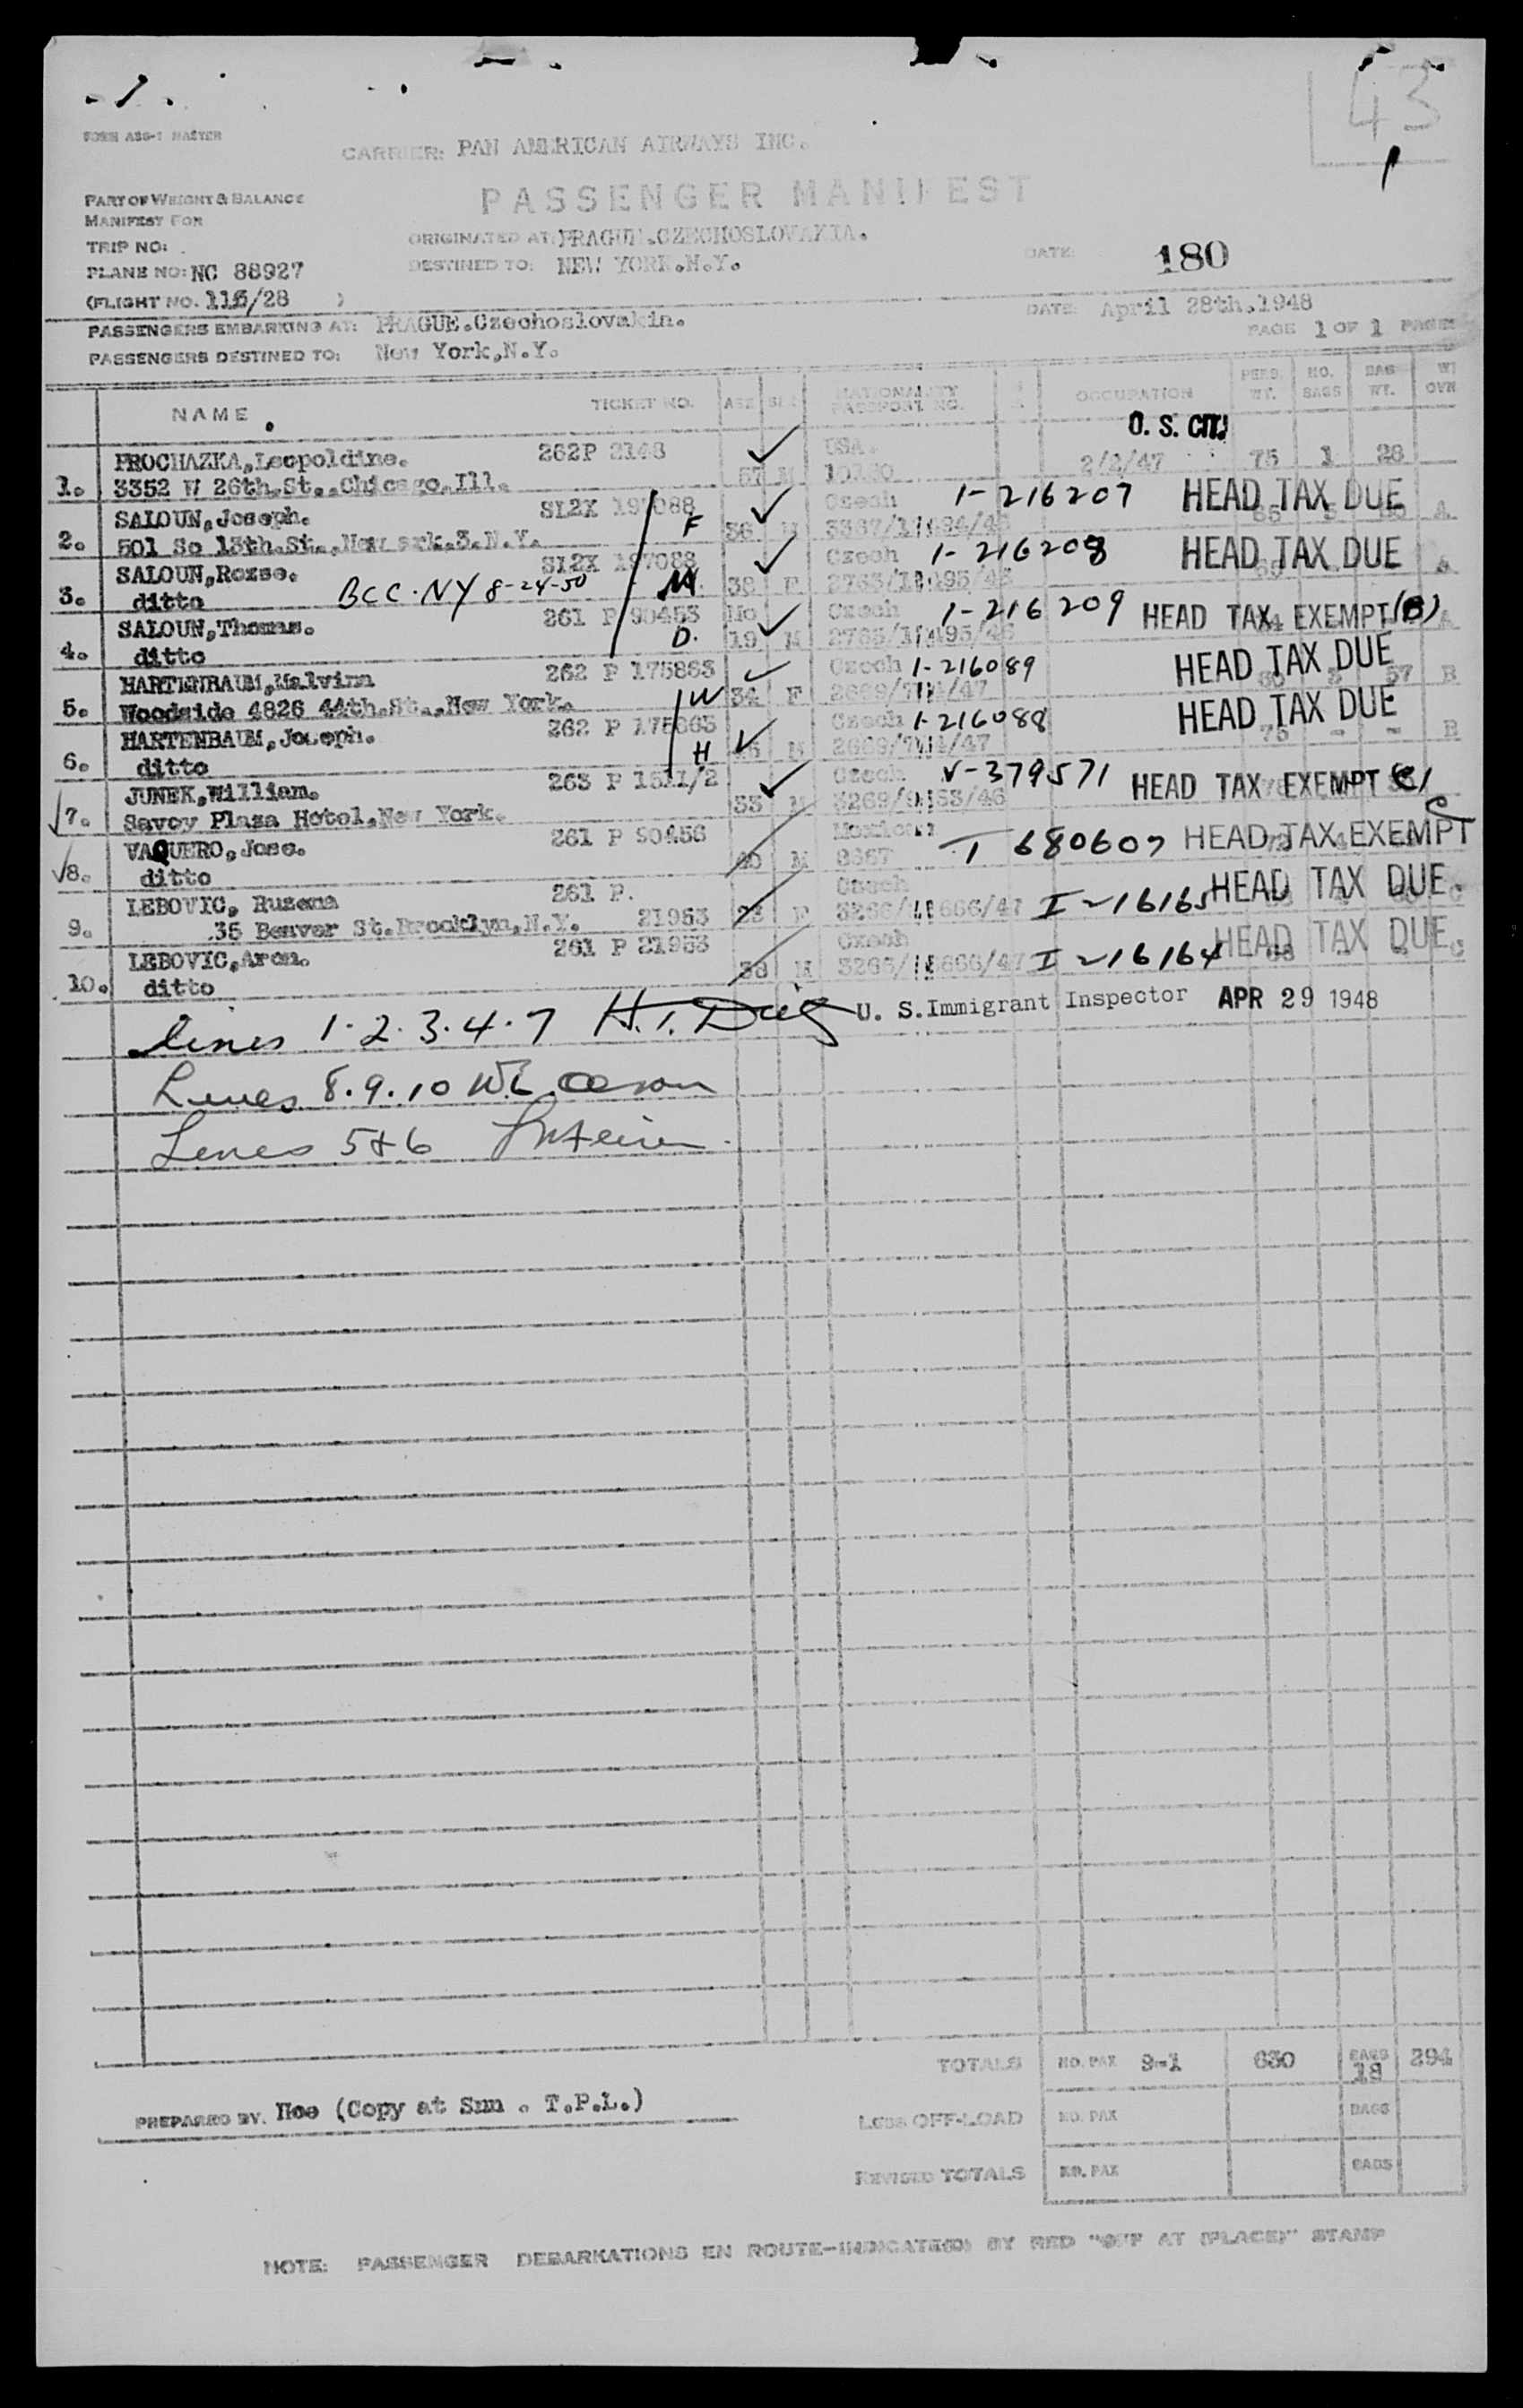 43
FORM ASG-1 MASTER
CARRIER: PAN AMERICAN AIRWAYS INC.
PASSENGER MANIFEST
PART OF WEIGHT & BALANCE
MANIFEST FOR
ORIGINATED AT: PRAGUE.CZECHOSLOVAKIA.
TRIP NO:
DESTINED TO: NEW YORK.N.Y.
DATE:
180
PLANE NO: NC 88927
(FLIGHT NO. 115/28 )
DATE: April 28th.1948
PASSENGERS EMBARKING AT: PRAGUE.Czechoslovakia.
PAGE 1 OF 1 PAGES
PASSENGERS DESTINED TO: New York,N.Y.
NAME TICKET NO. AGE SEX NATIONALITY PASSPORT NO. OCCUPATION PERS. WT. NO. BAGS BAG WT.
U. S. CIT.
PROCHAZKA,Leopoldine. 262P 2148 USA.
1. 3352 W 26th.St.,Chicago.Ill. 57 2/2/47 75 1 28
SALOUN,Joseph. SL2X 197088 F Czech 1-216207 HEAD TAX DUE
2. 501 So 13th.St.,New ark.3.N.Y. 36 M A
SALOUN,Rozse. SL2X 197088 Czech 1-216208 HEAD TAX DUE
3. ditto BCC. NY 8-24-50 M. 38 F A
SALOUN,Thomas. 261 P 90453 Mo Czech 1-216209 HEAD TAX EXEMPT (B)
4. ditto D. 19 M A
HARTENBAUM,Malvina 262 P 175863 Czech 1-216089 HEAD TAX DUE
5. Woodside 4826 44th.St.,New York. W 34 F 57 B
HARTENBAUM,Joseph. 262 P 175863 Czech 1-216088 HEAD TAX DUE
6. ditto H M 75 - - B
JUNEK,William. 263 P 1511/2 Czech V-379571 HEAD TAX EXEMPT
7. Savoy Plaza Hotel.New York. 33 M
VAQUERO,Jose. 261 P 90456 T 680607 HEAD TAX EXEMPT
8. ditto 40 M
LEBOVIC, Ruzena 261 P. Czech I-16165 HEAD TAX DUE
9. 35 Beaver St.Brooklyn,N.Y. 21953 F C
LEBOVIC,Aron. 261 P 21953 Czech I-16164 HEAD TAX DUE
10. ditto 38 M C
U. S. Immigrant Inspector APR 29 1948
Lines 1.2.3.4.7
Lines 8.9.10
Lines 5 & 6
TOTALS NO. PAX 9-1 630 BAGS 18 294
PREPARED BY. (Copy at Snn . T.P.L.)
LESS OFF-LOAD NO. PAX BAGS
REVISED TOTALS NO. PAX BAGS
NOTE: PASSENGER DEBARKATIONS EN ROUTE-INDICATED BY RED "OFF AT (PLACE)" STAMP